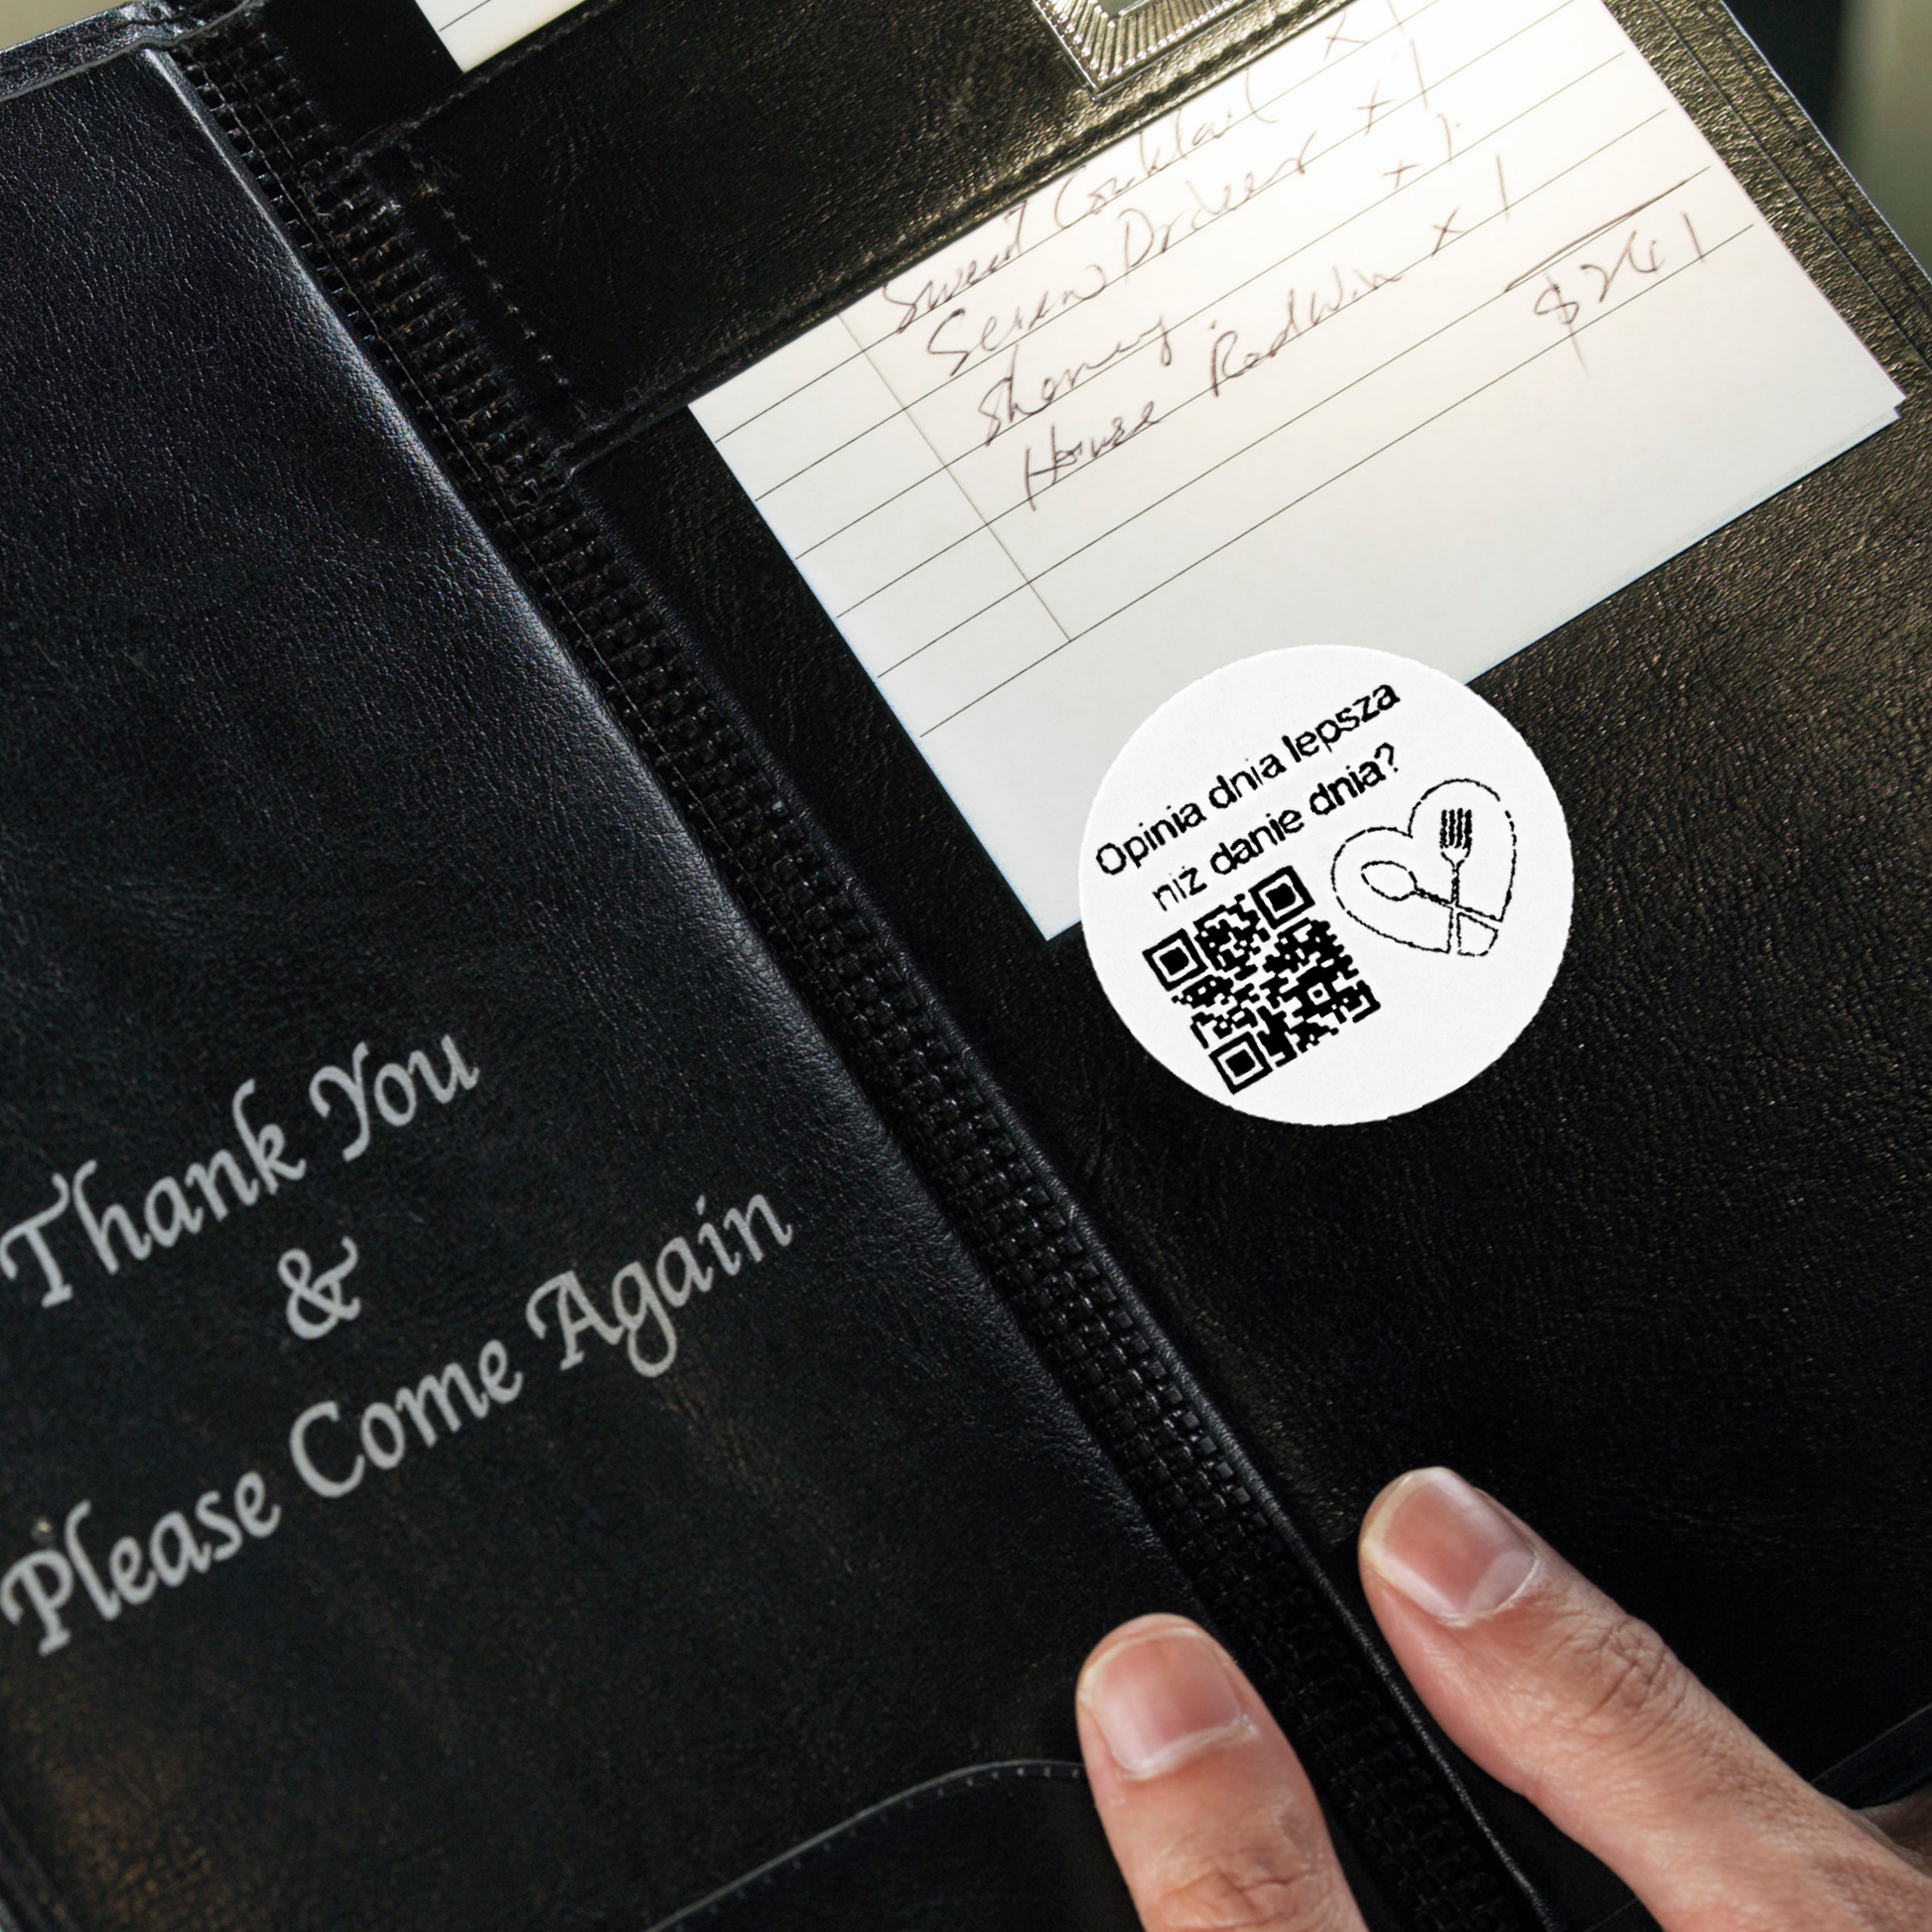 Sweet Cocktail x 1
Screw Drdeer x 1
Sherry x 1
House Red Win x 1
$241
Opinia dnia lepsza
niż danie dnia?
Thank You
&
Please Come Again